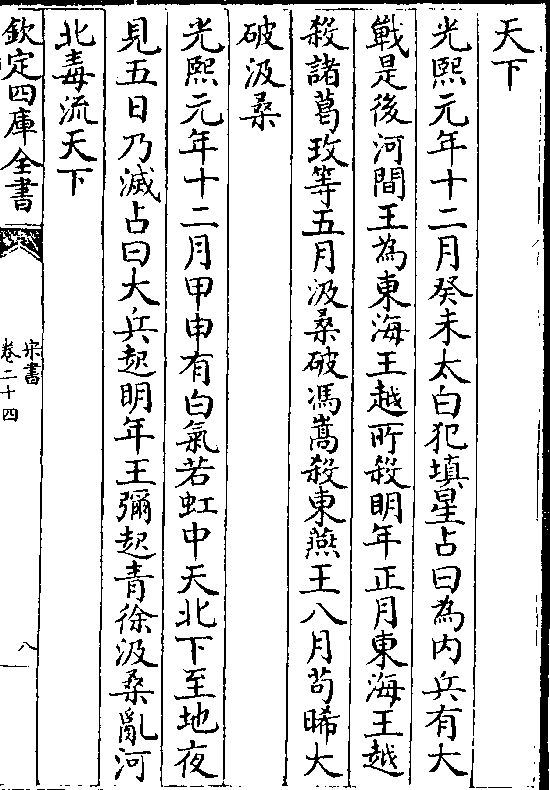 天下
光熙元年十二月癸未太白犯填星占曰為内兵有大
戰是後河間王為東海王越所殺明年正月東海王越
殺諸葛玫等五月汲桑破馮嵩殺東燕王八月苟晞大
破汲桑
光熙元年十二月甲申有白氣若虹中天北下至地夜
見五日乃滅占曰大兵起明年王彌起青徐汲桑亂河
北毒流天下
欽定四庫全書
宋書
卷二十四
八